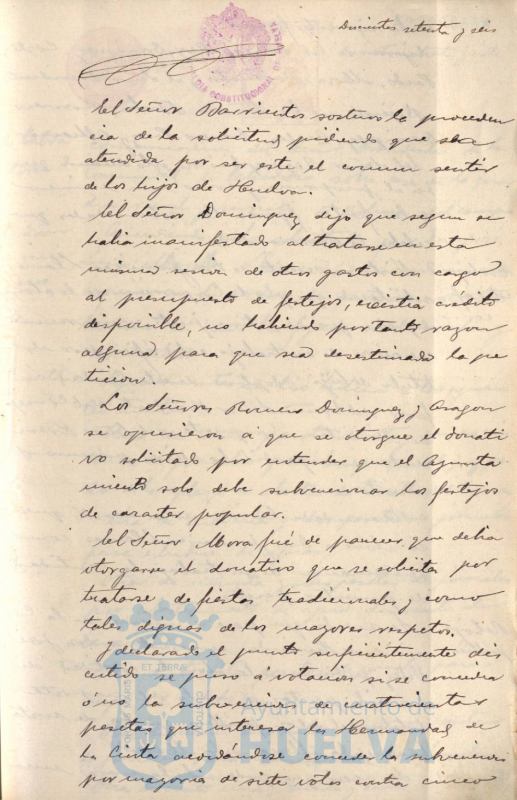 Doscientos setenta y seis
El Señor Barrientos sostuvo la proceden
cia de la solicitud pidiendo que sea
atendida por ser este el comun sentir
de los hijos de Huelva.
El Señor Dominguez dijo que segun se
habia manifestado al tratarse en esta
misma sesion de otros gastos con cargo
al presupuesto de festejos, existia crédito
disponible, no habiendo por tanto razon
alguna para que sea desestimada la pe
ticion.
Los Señores Romero Dominguez y Aragon
se opusieron á que se otorgue el donati
vo solicitado por entender que el Ayunta
miento solo debe subvencionar los festejos
de caracter popular.
El Señor Mora fué de parecer que debia
otorgarse el donativo que se solicita por
tratarse de fiestas tradicionales y como
tales dignas de los mayores respetos.
Y declarado el punto suficientemente dis
cutido se puso á votacion si se concedia
ó no la subvencion de cuatrocientas
pesetas que interesa la Hermandad de
la Cinta acordándose conceder la subvencion
por mayoria de siete votos contra cinco
ET TERRAE
Ayuntamiento de
HUELVA